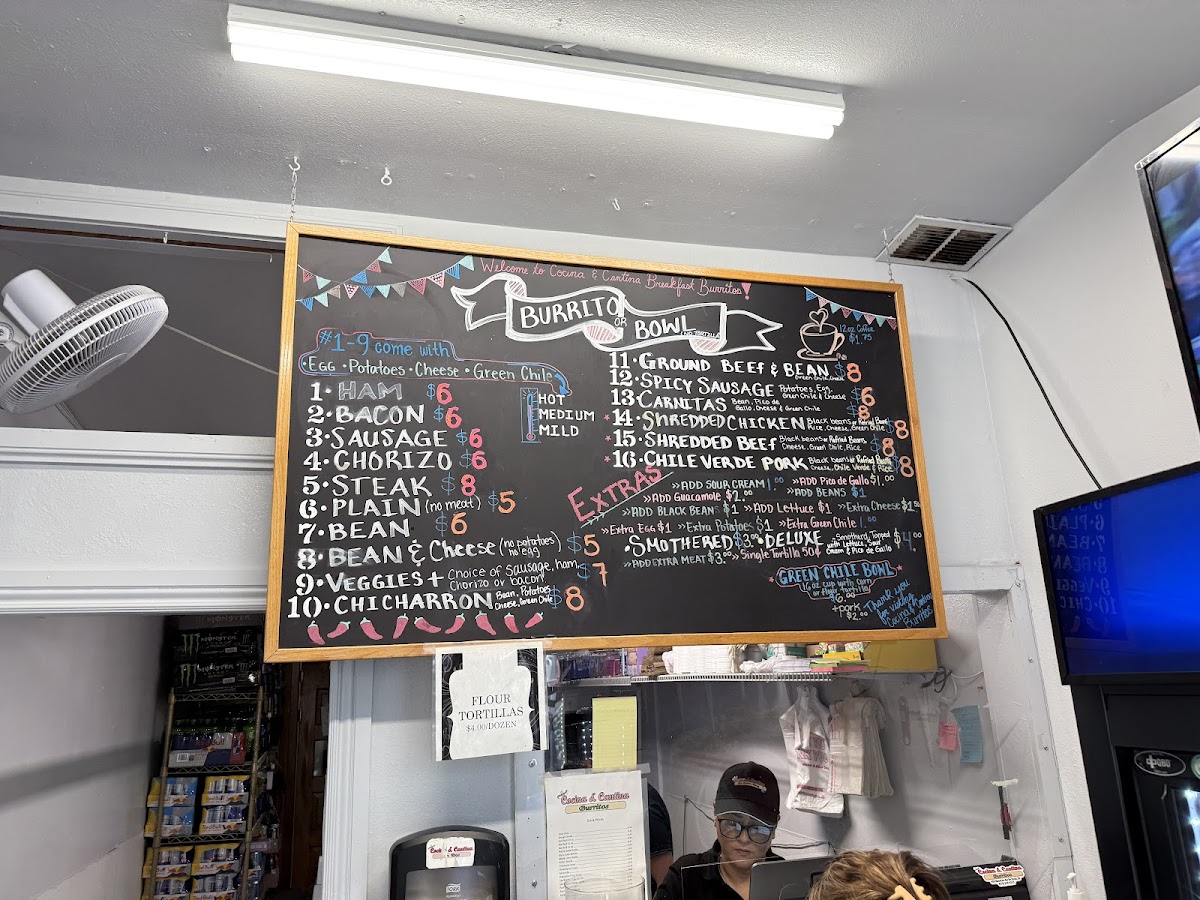 Welcome to Cocina & Cantina Breakfast Burritos!
BURRITO OR BOWL (NO TORTILLA)
12oz Coffee
$1.75
#1-9 come with
•Egg •Potatoes •Cheese •Green Chile
1•HAM $6
2•BACON $6
3•SAUSAGE $6
4•CHORIZO $6
5•STEAK $8
6•PLAIN (no meat) $5
7•BEAN $6
8•BEAN & Cheese (no potatoes) $5
no egg
9•VEGGIES + Choice of Sausage, ham, $7
Chorizo or bacon
10•CHICHARRON Bean, Potatoes $8
Cheese, Green Chile
HOT
MEDIUM
MILD
11•GROUND BEEF & BEAN $8
Green Chile, Cheese
12•SPICY SAUSAGE Potatoes, Egg, $6
Green Chile & Cheese
13•CARNITAS Bean, Pico de $8
Gallo, Cheese & Green Chile
14•SHREDDED CHICKEN Black beans or Refried Beans $8
Rice, Cheese, Green Chile
15•SHREDDED BEEF Black beans or Refried Beans $8
Cheese, Green Chile, Rice
16•CHILE VERDE PORK Black beans or Refried Beans $8
Cheese, Chile Verde & Rice
EXTRAS
»ADD SOUR CREAM 1.00 »ADD Pico de Gallo $1.00
»ADD Guacamole $2.00 »ADD BEANS $1
»ADD BLACK BEANS $1 »ADD LETTUCE $1 »Extra Cheese $1.50
»Extra Egg $1 »Extra Potatoes $1 »Extra Green Chile 1.00
•SMOTHERED $3.00 •DELUXE Smothered, Topped $4.00
with Lettuce, Sour
Cream & Pico de Gallo
»ADD EXTRA MEAT $3.00 »Single Tortilla 50¢
GREEN CHILE BOWL
16oz cup with corn
or flour tortilla
$6.00
+pork
$2.00
Thank you
for visiting
Cocina & Cantina
Burritos
FLOUR
TORTILLAS
$4.00/DOZEN
Cocina & Cantina
Burritos
MONSTER
Red Bull
Cocina & Cantina
TORK
6-PLAIN
7-BEAN